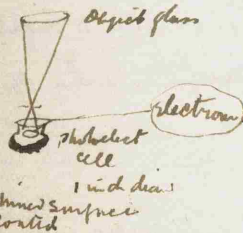 Object glass
Electrom
photoelect
cell
1 inch diam
surface